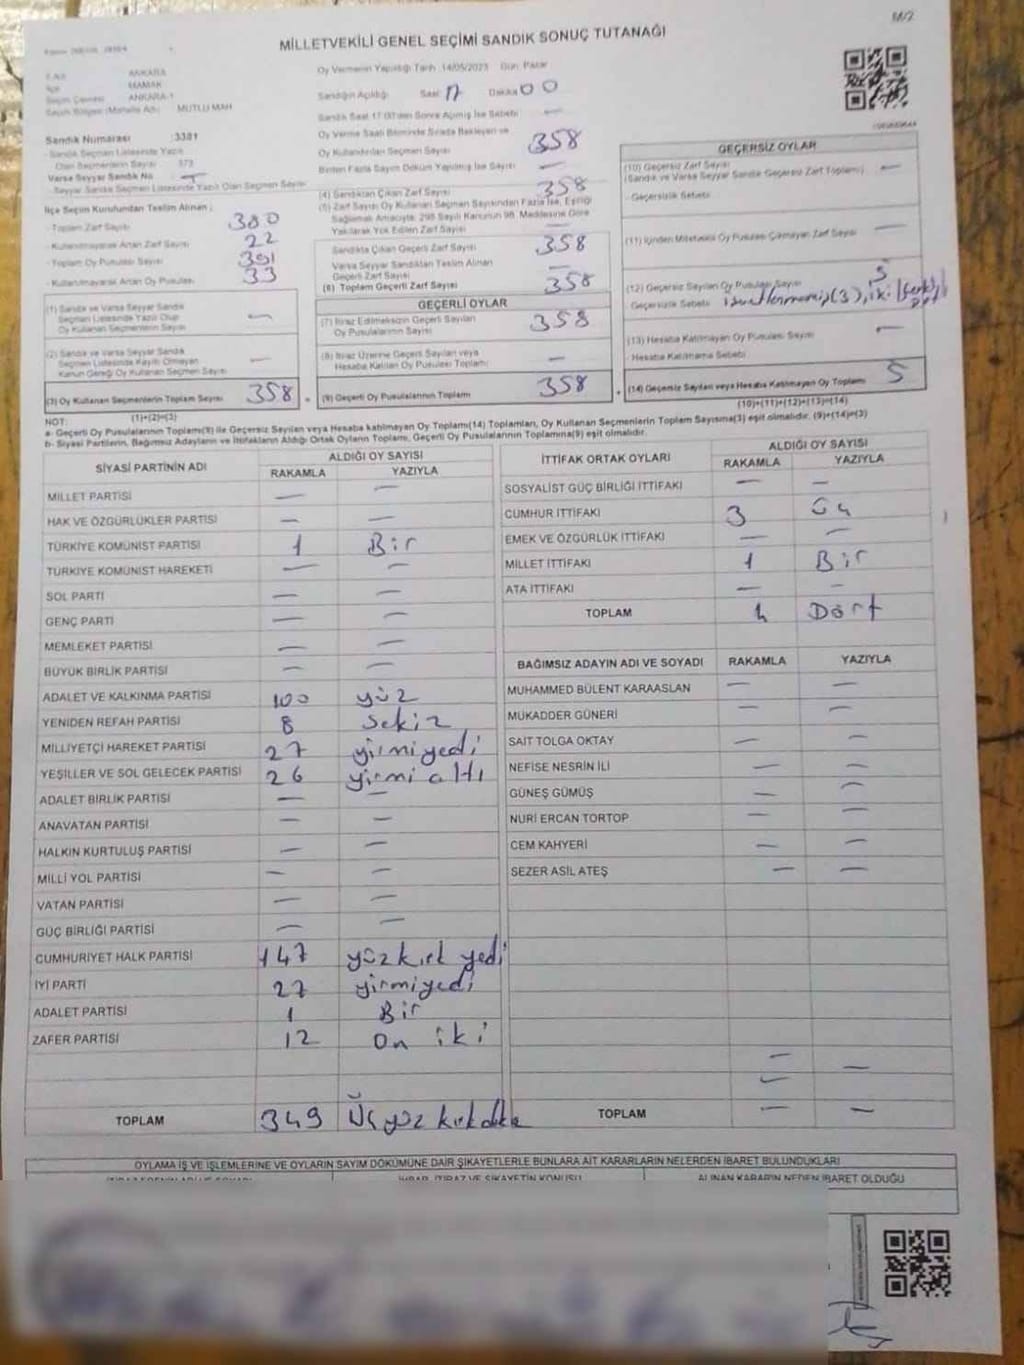 M/2
MİLLETVEKİLİ GENEL SEÇİMİ SANDIK SONUÇ TUTANAĞI
ANKARA
MAMAK
ANKARA-1
Seçim Bölgesi (Mahalle Adı) MUTLU MAH
Sandık Numarası :3381
Sandık Seçmen Listesinde Yazılı
Olan Seçmenlerin Sayısı 373
Varsa Seyyar Sandık No
Seyyar Sandık Seçmen Listesinde Yazılı Olan Seçmen Sayısı
İlçe Seçim Kurulundan Teslim Alınan ;
- Toplam Zarf Sayısı 380
- Kullanılmayarak Artan Zarf Sayısı 22
- Toplam Oy Pusulası Sayısı 391
- Kullanılmayarak Artan Oy Pusulası 33
(1) Sandık ve Varsa Seyyar Sandık
Seçmen Listesinde Yazılı Olup
Oy Kullanan Seçmenlerin Sayısı —
(2) Sandık ve Varsa Seyyar Sandık
Seçmen Listesinde Kayıtlı Olmayan
Kanun Gereği Oy Kullanan Seçmen Sayısı —
(3) Oy Kullanan Seçmenlerin Toplam Sayısı 358
(1)+(2)=(3)
Oy Vermenin Yapıldığı Tarih :14/05/2023 Gün: Pazar
Sandığın Açıldığı Saat 17 Dakika 00
Sandık Saat 17:00'den Sonra Açılmış İse Sebebi —
Oy Verme Saati Bitiminde Sırada Bekleyen ve
Oy Kullandırılan Seçmen Sayısı 358
Birden Fazla Sayım Döküm Yapılmış İse Sayısı —
(4) Sandıktan Çıkan Zarf Sayısı 358
(5) Zarf Sayısı Oy Kullanan Seçmen Sayısından Fazla İse, Eşitliği
Sağlamak Amacıyla; 298 Sayılı Kanunun 98. Maddesine Göre
Yakılarak Yok Edilen Zarf Sayısı —
Sandıkta Çıkan Geçerli Zarf Sayısı 358
Varsa Seyyar Sandıktan Teslim Alınan
Geçerli Zarf Sayısı —
(6) Toplam Geçerli Zarf Sayısı 358
GEÇERLİ OYLAR
(7) İtiraz Edilmeksizin Geçerli Sayılan
Oy Pusulalarının Sayısı 358
(8) İtiraz Üzerine Geçerli Sayılan veya
Hesaba Katılan Oy Pusulası Toplamı —
(9) Geçerli Oy Pusulalarının Toplamı 358
GEÇERSİZ OYLAR
(10) Geçersiz Zarf Sayısı
(Sandık ve Varsa Seyyar Sandık Geçersiz Zarf Toplamı) —
- Geçersizlik Sebebi
(11) İçinden Milletvekili Oy Pusulası Çıkmayan Zarf Sayısı —
(12) Geçersiz Sayılan Oy Pusulası Sayısı 5
Geçersizlik Sebebi
(13) Hesaba Katılmayan Oy Pusulası Sayısı —
Hesaba Katılmama Sebebi
(14) Geçersiz Sayılan veya Hesaba Katılmayan Oy Toplamı 5
(10)+(11)+(12)+(13)=(14)
NOT:
a- Geçerli Oy Pusulalarının Toplamı(9) ile Geçersiz Sayılan veya Hesaba katılmayan Oy Toplamı(14) Toplamları, Oy Kullanan Seçmenlerin Toplam Sayısına(3) eşit olmalıdır. (9)+(14)=(3)
b- Siyasi Partilerin, Bağımsız Adayların ve İttifakların Aldığı Ortak Oyların Toplamı, Geçerli Oy Pusulalarının Toplamına(9) eşit olmalıdır.
SİYASİ PARTİNİN ADI ALDIĞI OY SAYISI
RAKAMLA YAZIYLA
MİLLET PARTİSİ — —
HAK VE ÖZGÜRLÜKLER PARTİSİ — —
TÜRKİYE KOMÜNİST PARTİSİ 1 Bir
TÜRKİYE KOMÜNİST HAREKETİ — —
SOL PARTİ — —
GENÇ PARTİ — —
MEMLEKET PARTİSİ — —
BÜYÜK BİRLİK PARTİSİ — —
ADALET VE KALKINMA PARTİSİ 100 yüz
YENİDEN REFAH PARTİSİ 8 Sekiz
MİLLİYETÇİ HAREKET PARTİSİ 27 yirmiyedi
YEŞİLLER VE SOL GELECEK PARTİSİ 26 yirmi altı
ADALET BİRLİK PARTİSİ — —
ANAVATAN PARTİSİ — —
HALKIN KURTULUŞ PARTİSİ — —
MİLLİ YOL PARTİSİ — —
VATAN PARTİSİ — —
GÜÇ BİRLİĞİ PARTİSİ — —
CUMHURİYET HALK PARTİSİ 147 yüzkırk yedi
İYİ PARTİ 27 yirmiyedi
ADALET PARTİSİ 1 Bir
ZAFER PARTİSİ 12 On iki
TOPLAM 349 Üçyüz
İTTİFAK ORTAK OYLARI ALDIĞI OY SAYISI
RAKAMLA YAZIYLA
SOSYALİST GÜÇ BİRLİĞİ İTTİFAKI — —
CUMHUR İTTİFAKI 3 Üç
EMEK VE ÖZGÜRLÜK İTTİFAKI — —
MİLLET İTTİFAKI 1 Bir
ATA İTTİFAKI — —
TOPLAM 4 Dört
BAĞIMSIZ ADAYIN ADI VE SOYADI RAKAMLA YAZIYLA
MUHAMMED BÜLENT KARAASLAN — —
MUKADDER GÜNERİ — —
SAİT TOLGA OKTAY — —
NEFİSE NESRİN İLİ — —
GÜNEŞ GÜMÜŞ — —
NURİ ERCAN TORTOP — —
CEM KAHYERİ — —
SEZER ASİL ATEŞ — —
TOPLAM — —
OYLAMA İŞ VE İŞLEMLERİNE VE OYLARIN SAYIM DÖKÜMÜNE DAİR ŞİKAYETLERLE BUNLARA AİT KARARLARIN NELERDEN İBARET BULUNDUKLARI
İHBAR, İTİRAZ VE ŞİKAYETİN KONUSU ALINAN KARARIN NEDEN İBARET OLDUĞU